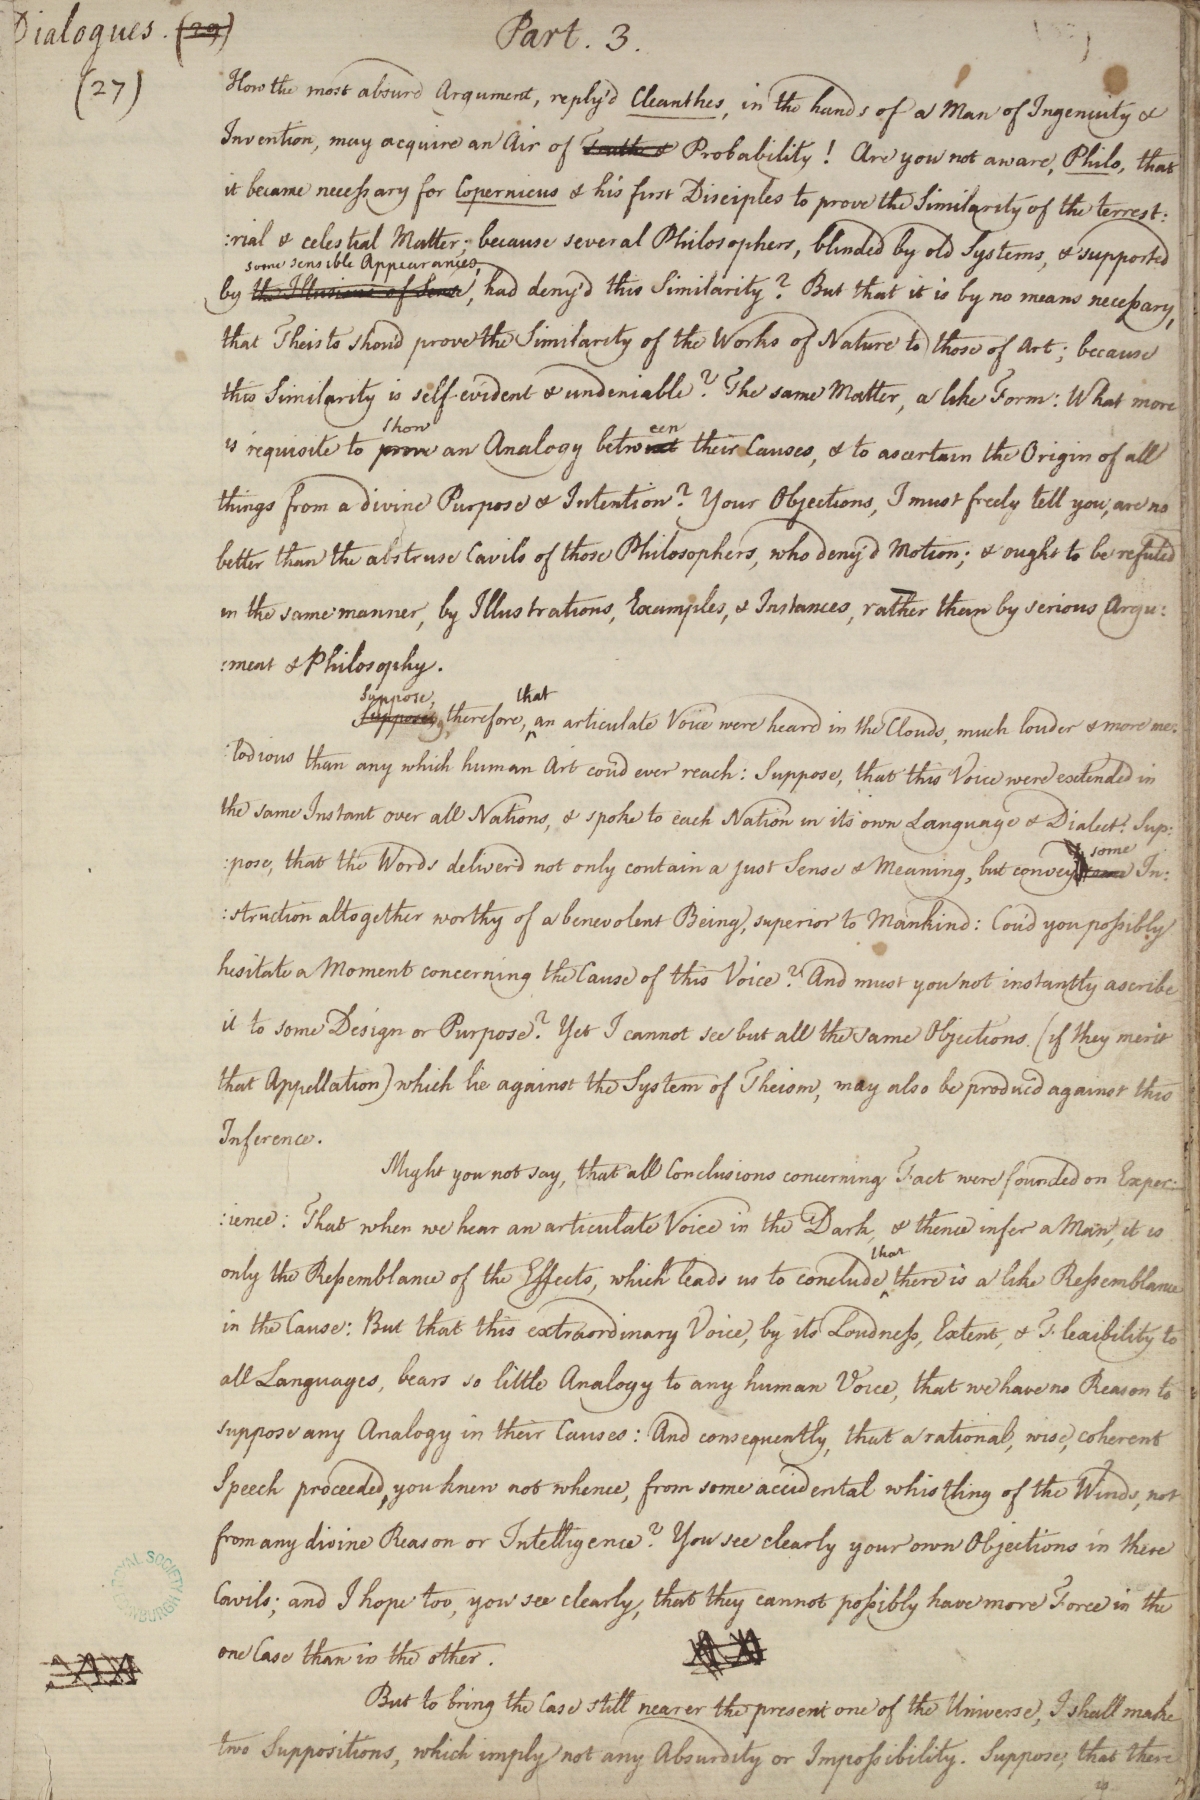 Dialogues. (29)
Part. 3.
(27)
How the most absurd Argument, reply'd Cleanthes, in the hands of a Man of Ingenuity &
Invention, may acquire an Air of Truth & Probability! Are you not aware, Philo, that
it became necessary for Copernicus & his first Disciples to prove the Similarity of the terrest:
:rial & celestial Matter; because several Philosophers, blinded by old Systems, & supported
some sensible Appearances,
by the Illusions of Sense, had deny'd this Similarity? But that it is by no means necessary,
that Theists shou'd prove the Similarity of the Works of Nature to those of Art; because
this Similarity is self-evident & undeniable? The same Matter, a like Form: What more
show een
is requisite to prove an Analogy betwixt their Causes, & to ascertain the Origin of all
things from a divine Purpose & Intention? Your Objections, I must freely tell you, are no
better than the abstruse Cavils of those Philosophers, who deny'd Motion; & ought to be refuted
in the same manner, by Illustrations, Examples, & Instances, rather than by serious Argu:
:ment & Philosophy.
Suppose, that
Supposing, therefore, an articulate Voice were heard in the Clouds, much louder & more me:
:lodious than any which human Art cou'd ever reach: Suppose, that this Voice were extended in
the same Instant over all Nations, & spoke to each Nation in its own Language & Dialect: Sup:
some
:pose, that the Words deliver'd not only contain a just Sense & Meaning, but convey In:
:struction altogether worthy of a benevolent Being, superior to Mankind: Cou'd you possibly
hesitate a Moment concerning the Cause of this Voice? And must you not instantly ascribe
it to some Design or Purpose? Yet I cannot see but all the same Objections (if they merit
that Appellation) which lie against the System of Theism, may also be produc'd against this
Inference.
Might you not say, that all Conclusions concerning Fact were founded on Exper:
:ience: That when we hear an articulate Voice in the Dark, & thence infer a Man, it is
that
only the Resemblance of the Effects, which leads us to conclude there is a like Resemblance
in the Cause: But that this extraordinary Voice, by its Loudness, Extent, & Flexibility to
all Languages, bears so little Analogy to any human Voice, that we have no Reason to
suppose any Analogy in their Causes: And consequently, that a rational, wise, coherent
Speech proceeded, you knew not whence, from some accidental whistling of the Winds, not
from any divine Reason or Intelligence? You see clearly your own Objections in these
Cavils; and I hope too, you see clearly, that they cannot possibly have more Force in the
one Case than in the other.
But to bring the Case still nearer the present one of the Universe, I shall make
two Suppositions, which imply not any Absurdity or Impossibility. Suppose, that there
ROYAL SOCIETY EDINBURGH